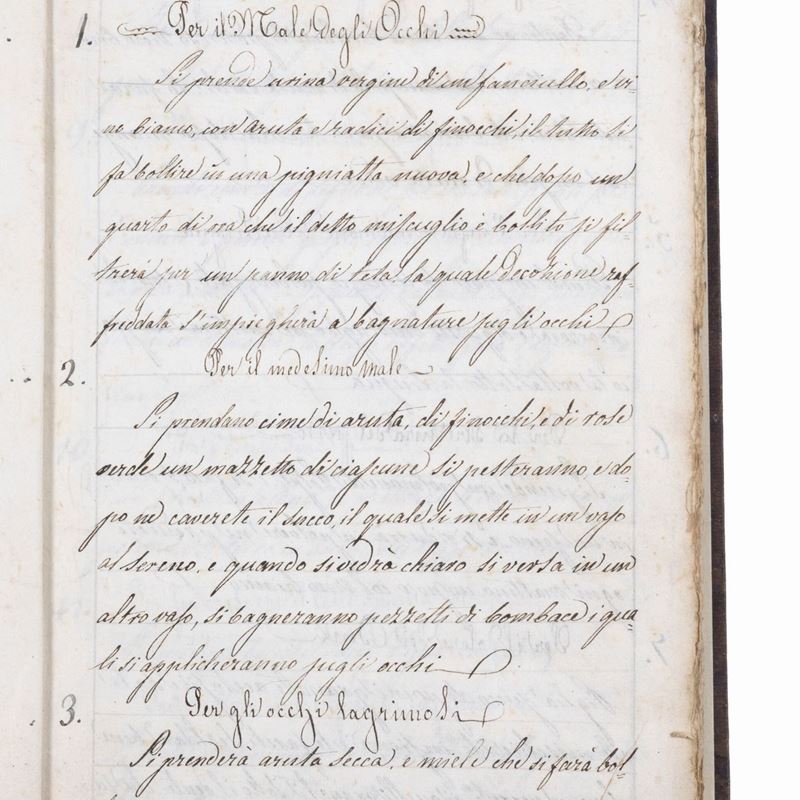 1. Per il Male degli Occhi
Si prende urina vergine di un fanciullo, e vi-
no bianco, con aruta e radici di finocchi, il tutto si
fa bollire in una pigniatta nuova, e che dopo un
quarto di ora che il detto miscuglio è bollito si fil-
trerà per un panno di tela, la quale decozione raf-
freddata s'impiegherà a bagnature sugli occhi
2. Per il medesimo male
Si prendano cime di aruta, di finocchi, e di rose
verde un mazzetto di ciascune si pesteranno, e do-
po ne caverete il succo, il quale si mette in un vaso
al sereno, e quando si vedrà chiaro si versa in un
altro vaso, si bagneranno pezzetti di bombace i qua-
li si applicheranno sugli occhi
3. Per gli occhi lagrimosi
Si prenderà aruta secca, e miele che si farà bol-